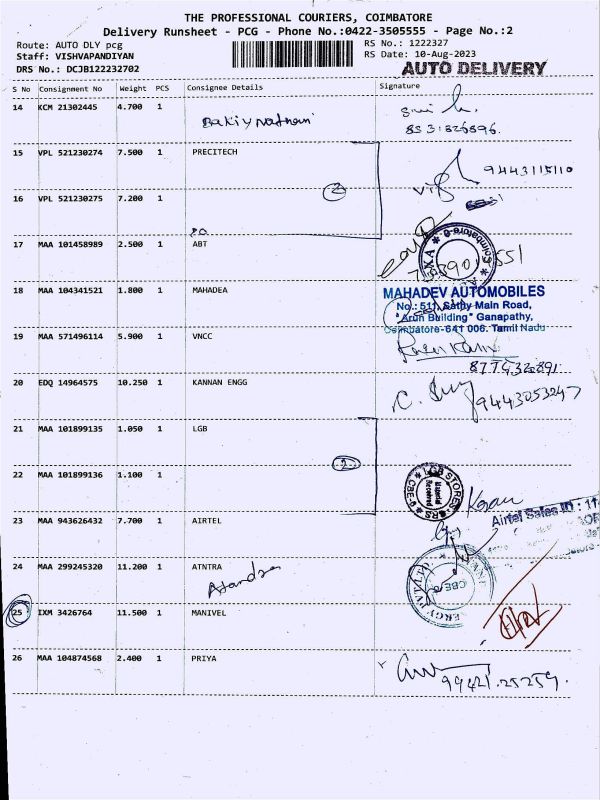 THE PROFESSIONAL COURIERS, COIMBATORE
Delivery Runsheet - PCG - Phone No.:0422-3505555 - Page No.:2
Route: AUTO DLY pcg
Staff: VISHVAPANDIYAN
DRS No.: DCJB122232702
RS No.: 1222327
RS Date: 10-Aug-2023
AUTO DELIVERY
S No Consignment No Weight PCS Consignee Details Signature
14 KCM 21302445 4.700 1
8531826896.
15 VPL 521230274 7.500 1 PRECITECH
9443115110
2
16 VPL 521230275 7.200 1
17 MAA 101458989 2.500 1 ABT
18 MAA 104341521 1.800 1 MAHADEA
MAHADEV AUTOMOBILES
No.: 511, Sathy Main Road,
"Arun Building" Ganapathy,
Coimbatore-641 006. Tamil Nadu
19 MAA 571496114 5.900 1 VNCC
20 EDQ 14964575 10.250 1 KANNAN ENGG
9443053247
21 MAA 101899135 1.050 1 LGB
2
22 MAA 101899136 1.100 1
LGB STORES
Material
Received
23 MAA 943626432 7.700 1 AIRTEL
Airtel Sales ID : 11
24 MAA 299245320 11.200 1 ATNTRA
25 IXM 3426764 11.500 1 MANIVEL
26 MAA 104874568 2.400 1 PRIYA
99421.25259.